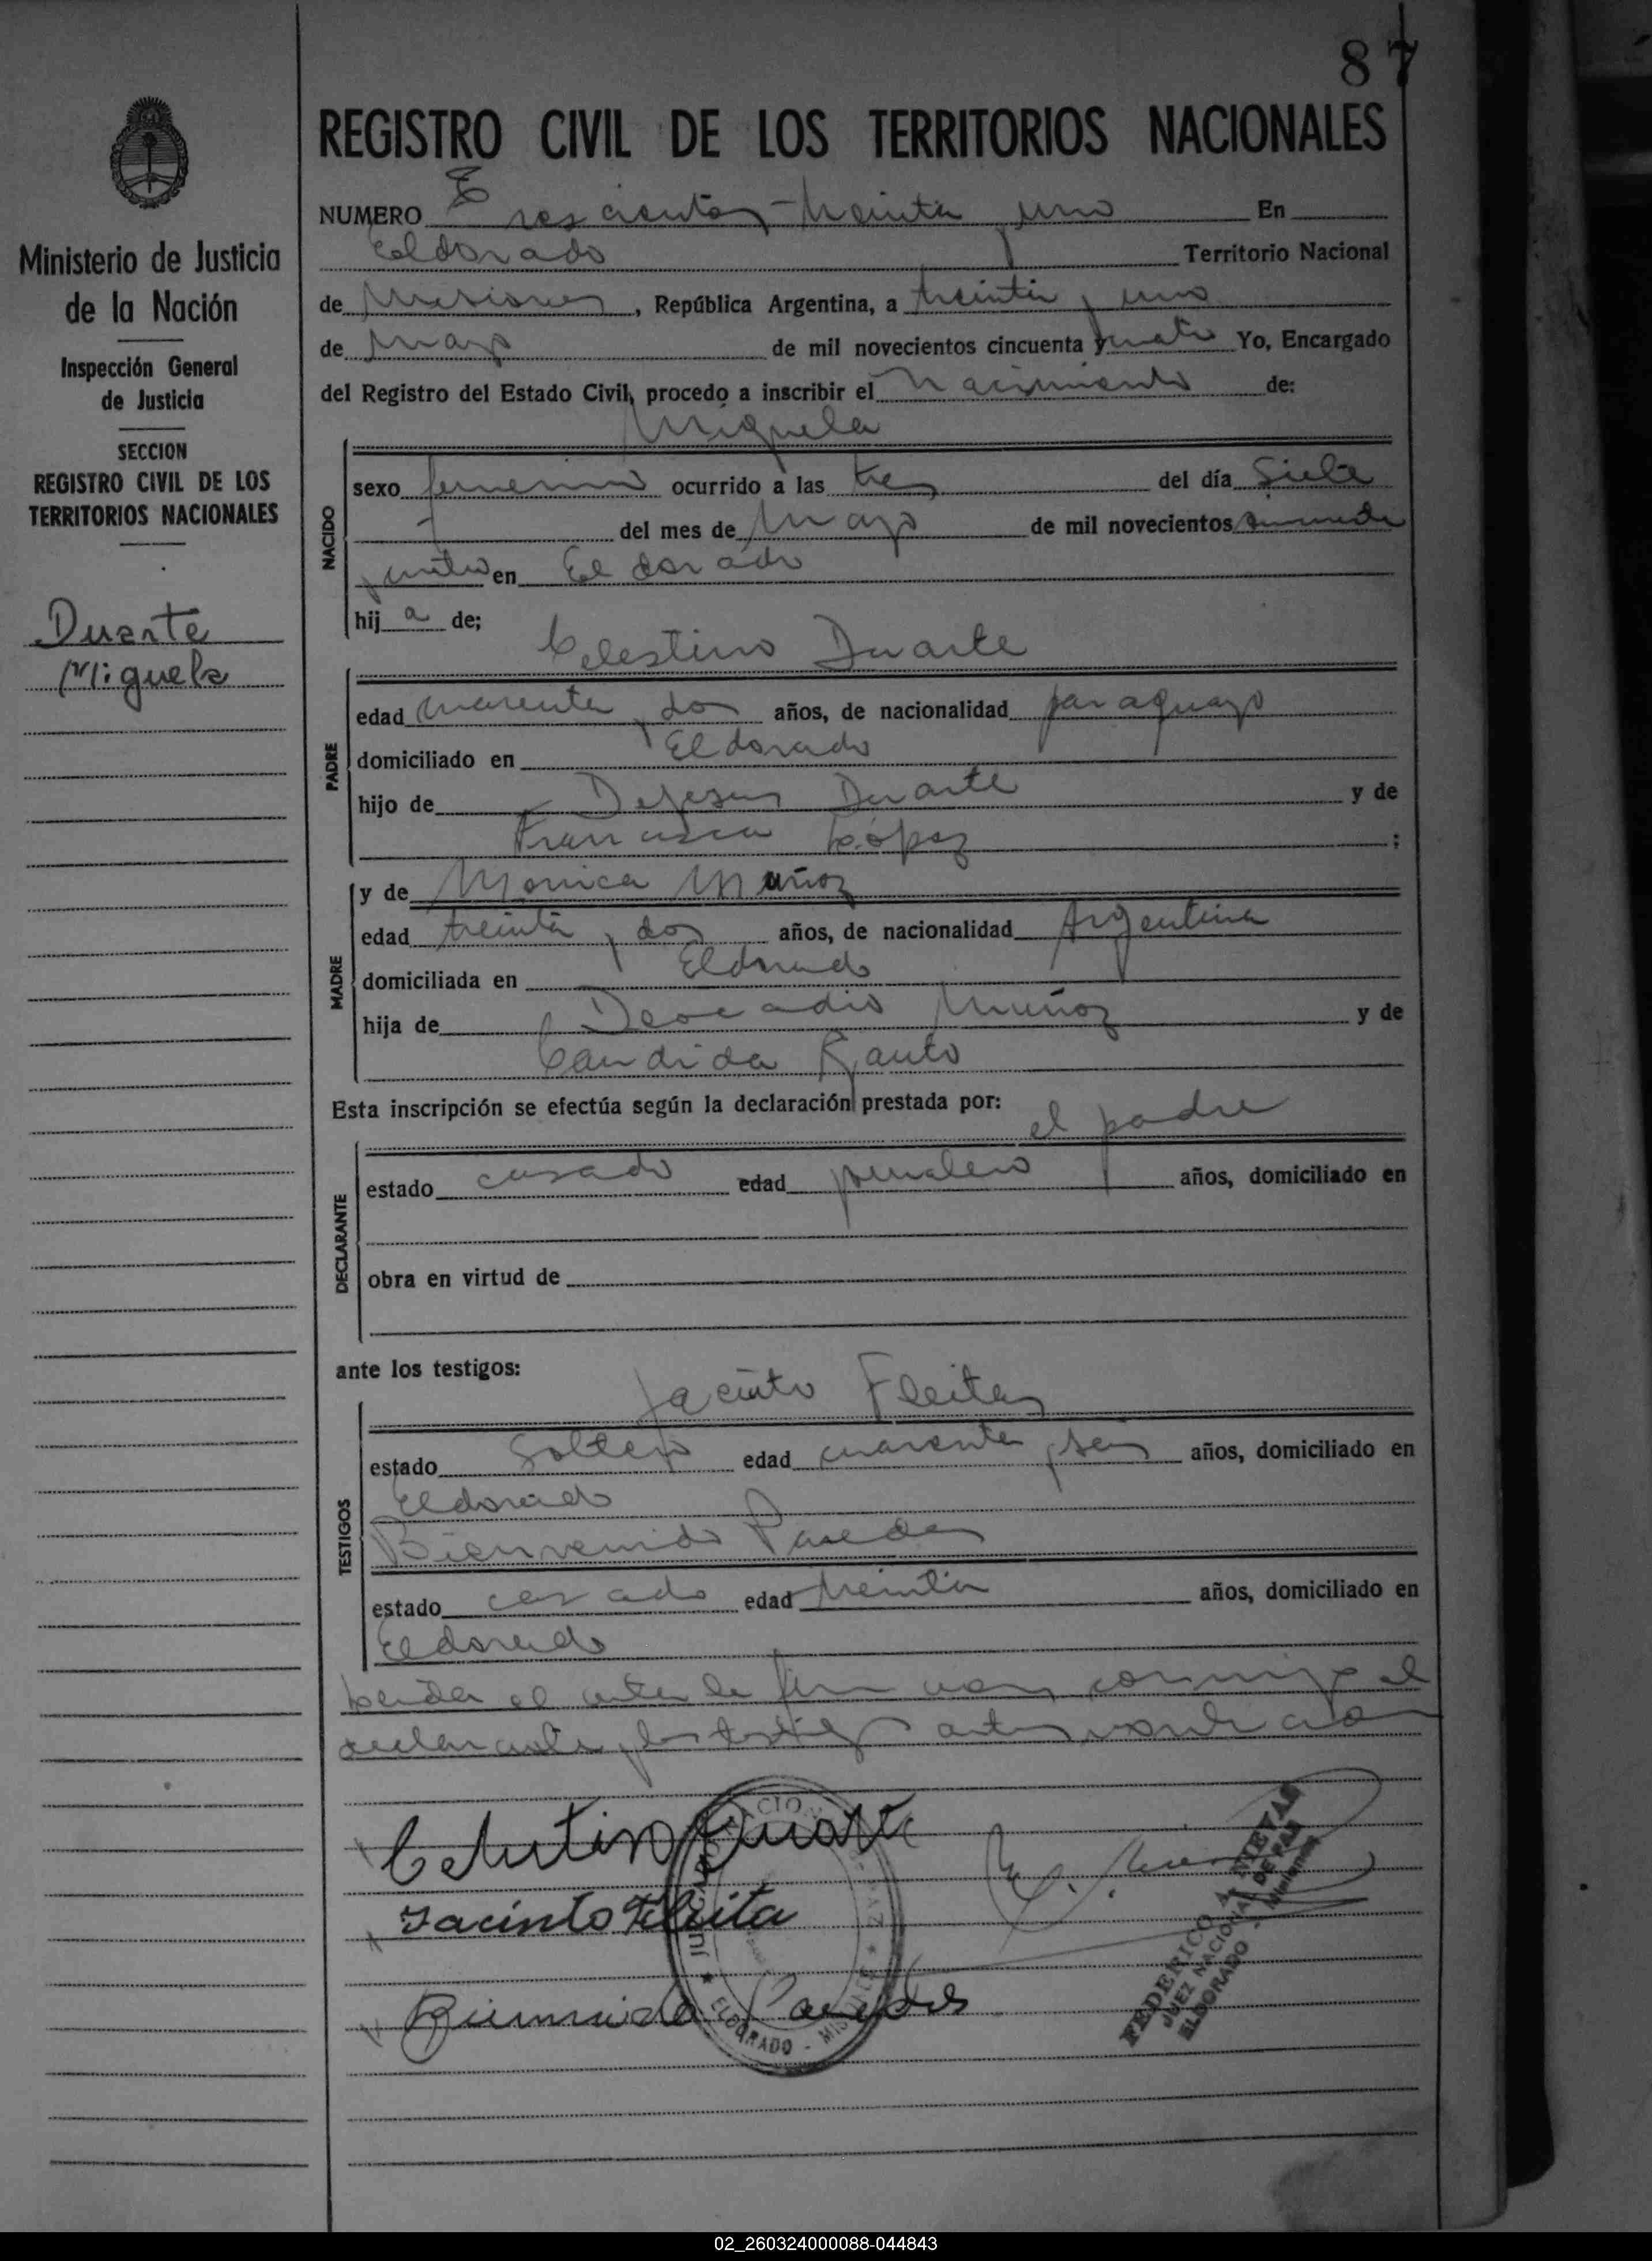 87
REGISTRO CIVIL DE LOS TERRITORIOS NACIONALES
Ministerio de Justicia
de la Nación
Inspección General
de Justicia
SECCION
REGISTRO CIVIL DE LOS
TERRITORIOS NACIONALES
Duarte
Miguela
NUMERO Trescientos treinta y uno En
Eldorado Territorio Nacional
de Misiones, República Argentina, a treinta y uno
de Mayo de mil novecientos cincuenta y cuatro Yo, Encargado
del Registro del Estado Civil, procedo a inscribir el nacimiento de:
Miguela
NACIDO
sexo femenino ocurrido a las tres del día Siete
del mes de Mayo de mil novecientos
y cuatro en Eldorado
hija de;
Celestino Duarte
PADRE
edad cuarenta y dos años, de nacionalidad paraguayo
domiciliado en Eldorado
hijo de Dejesus Duarte y de
Francisca López ;
MADRE
y de Monica Muñoz
edad treinta y dos años, de nacionalidad Argentina
domiciliada en Eldorado
hija de Deocadio Muñoz y de
Candida
Esta inscripción se efectúa según la declaración prestada por: el padre
DECLARANTE
estado casado edad jornalero años, domiciliado en
obra en virtud de
ante los testigos:
Jacinto Fleitas
TESTIGOS
estado Soltero edad cuarenta y seis años, domiciliado en
Eldorado
Bienvenido Paredes
estado casado edad treinta años, domiciliado en
Eldorado
Leida el acta la firman conmigo el
declarante y los testigos antes nombrados
Celestino Duarte
Jacinto Fleita
Bienvenido Paredes
ELDORADO - MISIONES
FEDERICO A. NIEVAS
JUEZ NACIONAL DE PAZ
ELDORADO - Misiones
02_260324000088-044843